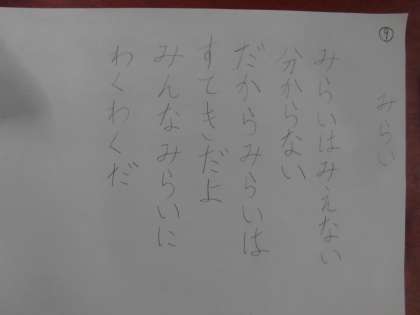 ⑨
みらい
みらいはみえない
分からない
だからみらいは
すてきだよ
みんなみらいに
わくわくだ